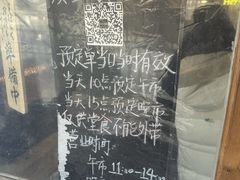 准備中
预定单当日当时有效
当天10点预定午市
当天15点预定晚市
仅供堂食不能外带
营业时间:
午市 11:00-14:00